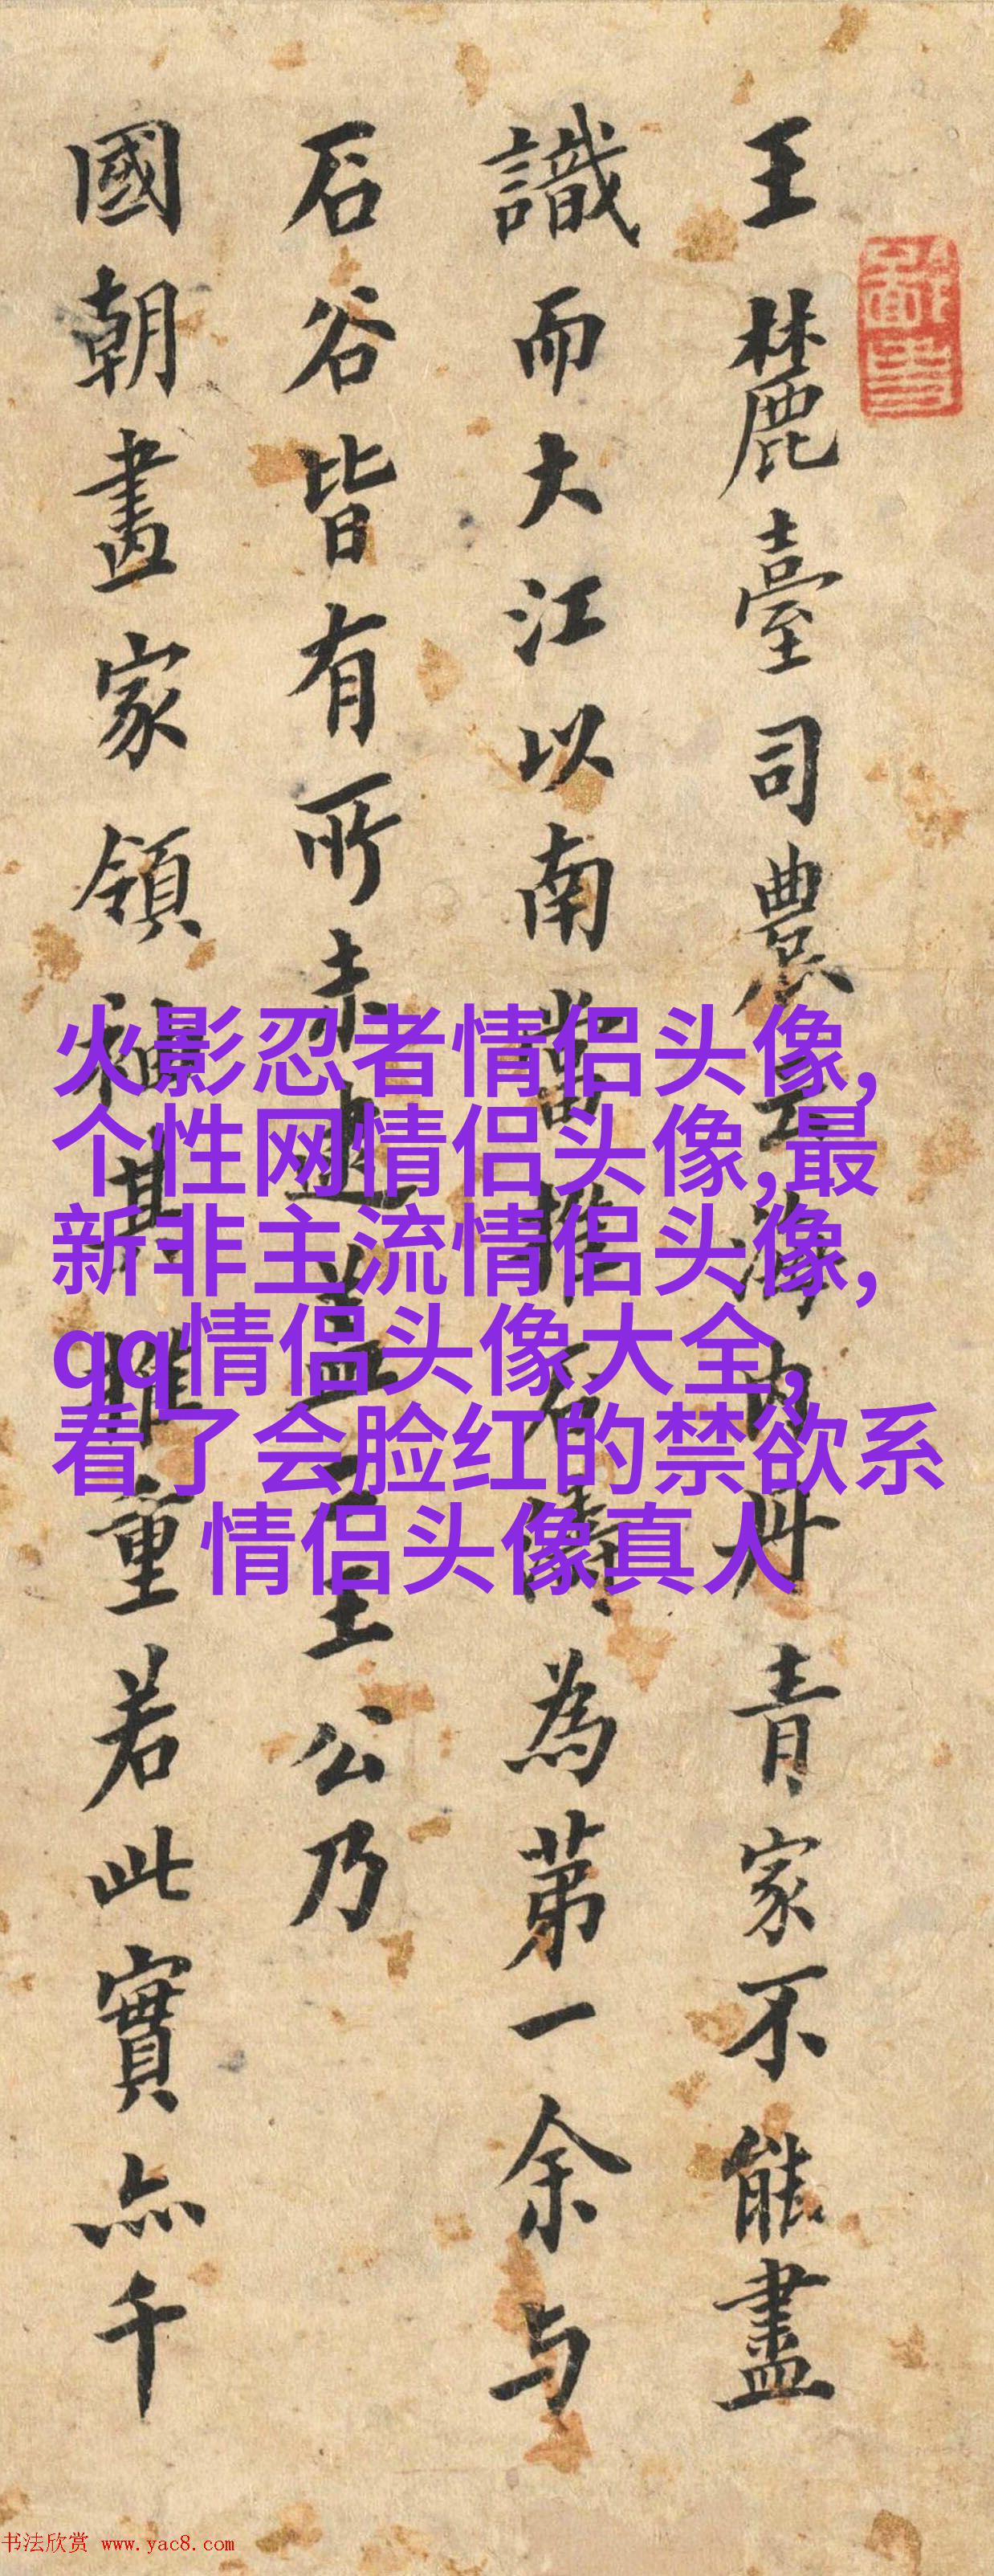 王麓臺司農云海内丹青家不能盡
識而大江以南當推石濤為第一余與
石谷皆有所未逮蓋王公乃
國朝畫家領神其推重若此實亦千
火影忍者情侣头像,
个性网情侣头像,最
新非主流情侣头像,
qq情侣头像大全,
看了会脸红的禁欲系
情侣头像真人
书法欣赏 www.yac8.com